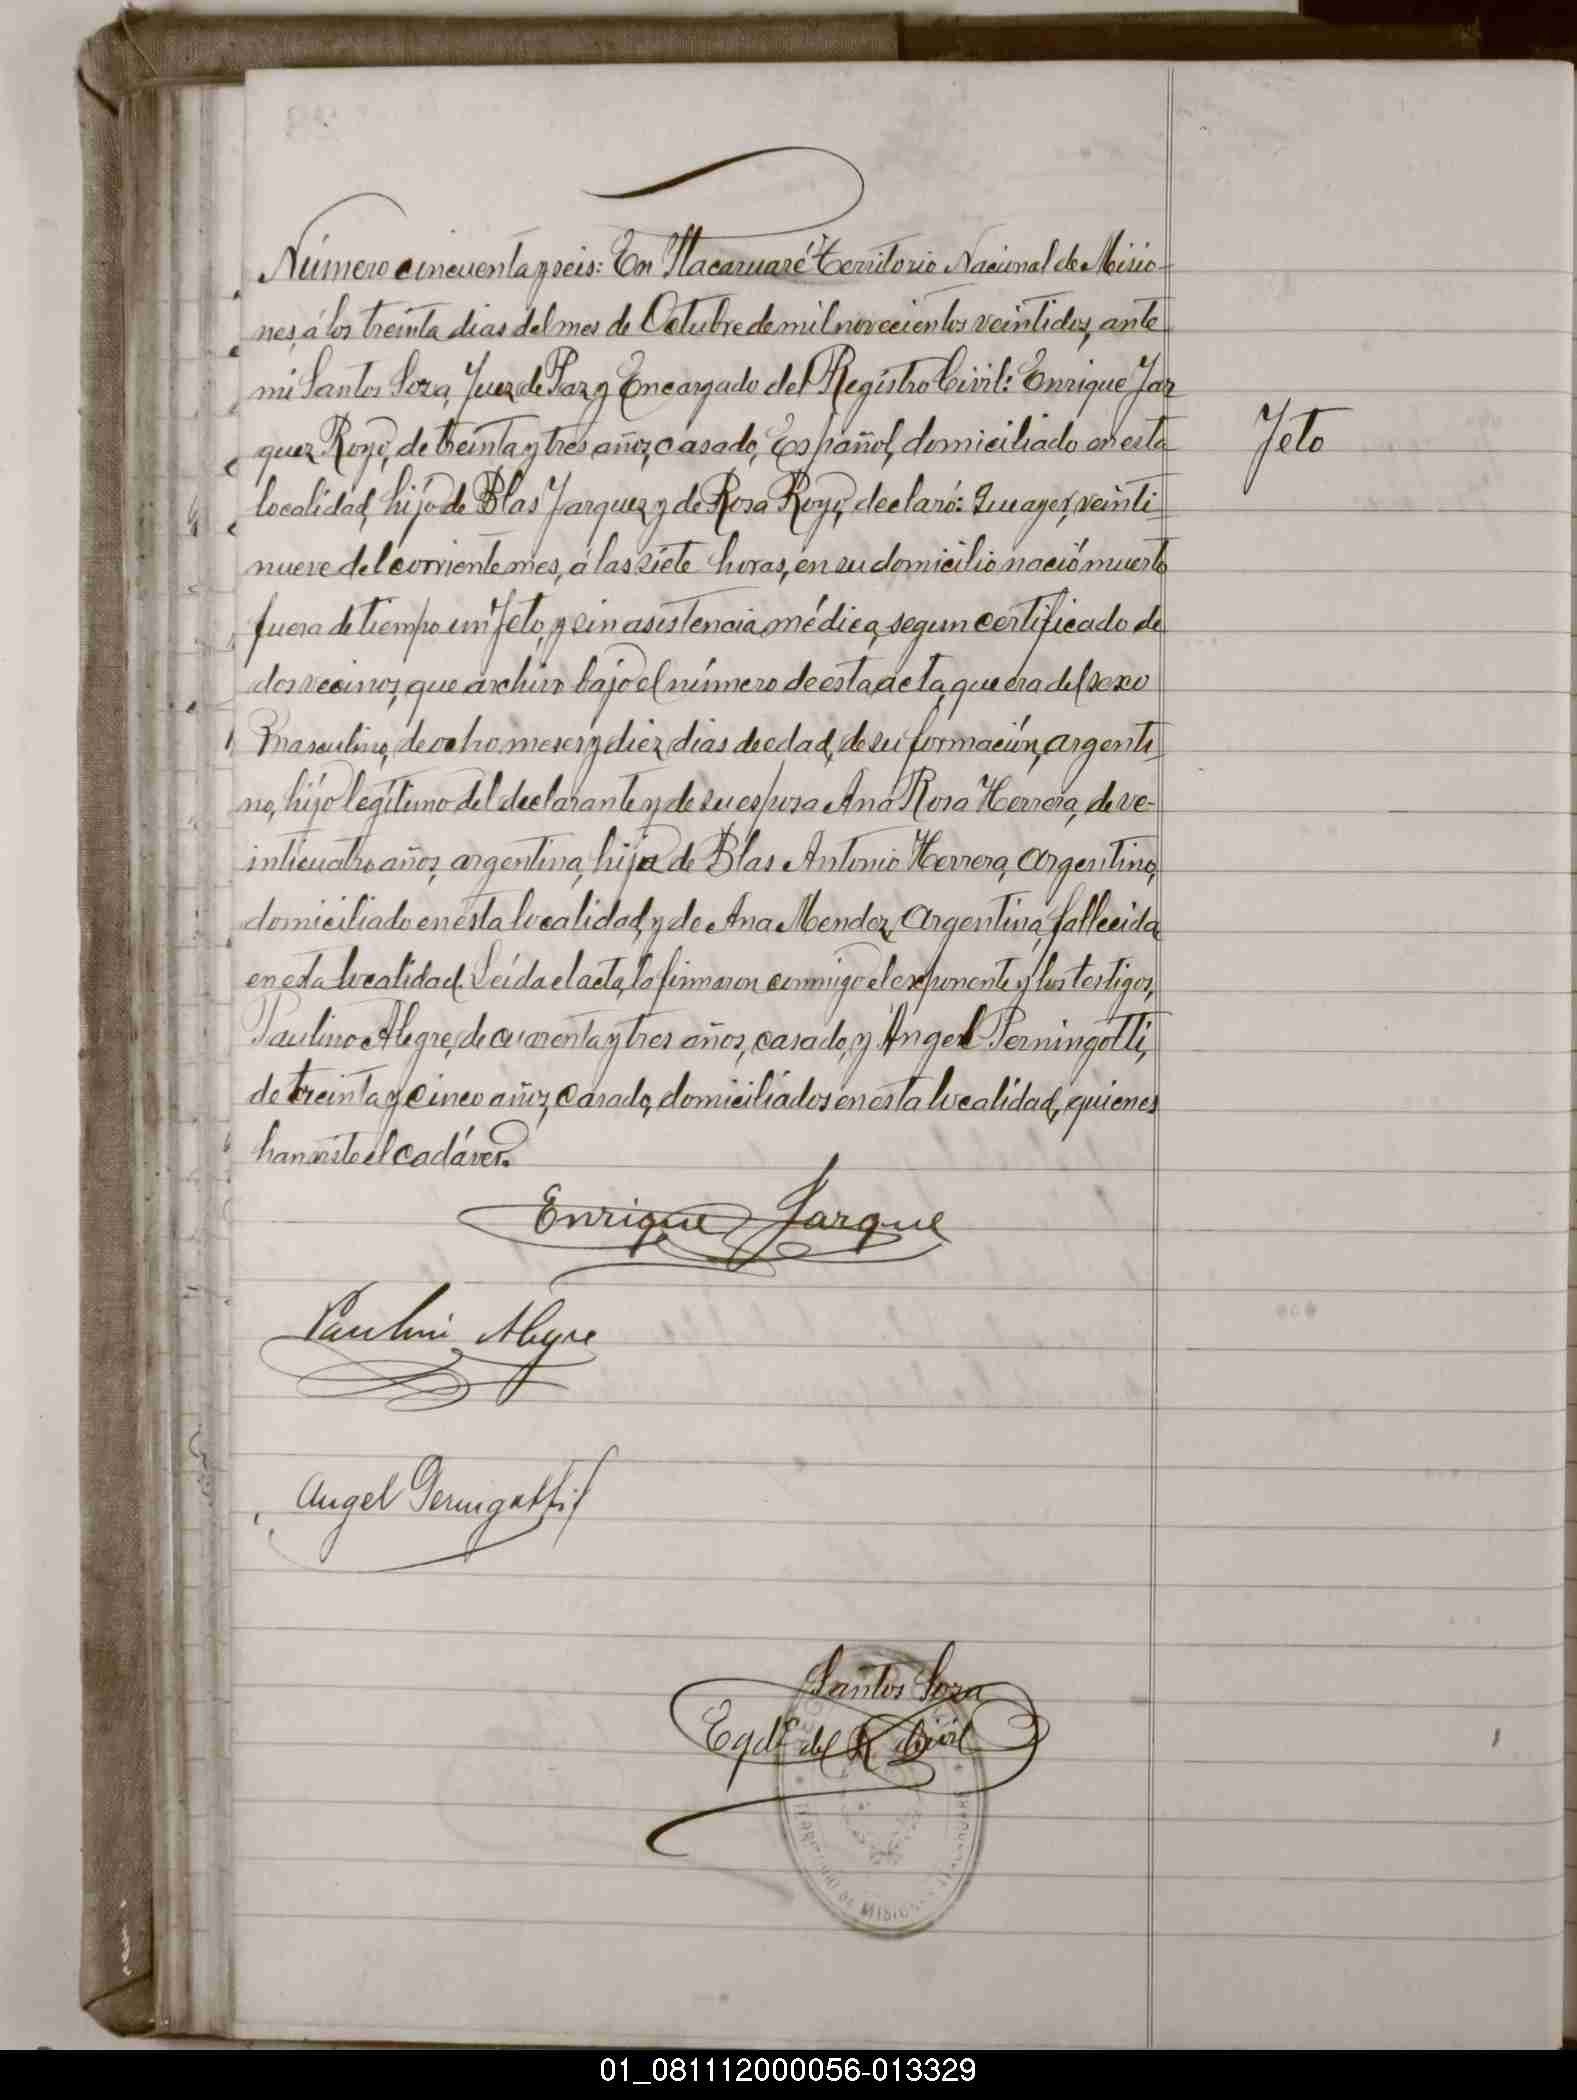 Número cincuenta y seis: En Itacaruaré Territorio Nacional de Misio-
nes, á los treinta dias del mes de Octubre de mil novecientos veintidos, ante
mi Santos Soza, Juez de Paz y Encargado del Registro Civil: Enrique Jar
quez Royo, de treinta y tres años, casado, Español, domiciliado en esta
Feto
localidad, hijo de Blas Jarquez y de Rosa Royo, declaró: Que ayer, veinti-
nueve del corriente mes, á las siete horas, en su domicilio nació muerto
fuera de tiempo un feto, y sin asistencia médica, segun certificado de
dos vecinos, que archivo bajo el número de esta acta, que era del sexo
Masculino, de ocho meses y diez dias de edad, de su formación, argenti-
no, hijo legítimo del declarante y de su esposa Ana Rosa Herrera, de ve-
inticuatro años, argentina, hija de Blas Antonio Herrera, Argentino,
domiciliado en esta localidad, y de Ana Mendez, Argentina, fallecida
en esta localidad. Leída el acta, la firmaron conmigo el exponente y los testigos,
Paulino Alegre, de cuarenta y tres años, casado, y Angel Perningotti,
de treinta y cinco años, casado, domiciliados en esta localidad, quienes
han visto el cadáver.
Enrique Jarque
Paulino Alegre
Angel Perningotti
Santos Soza
Egdo del R. Civil
TERRITORIO DE MISIONES ITACARUARÉ
01_081112000056-013329